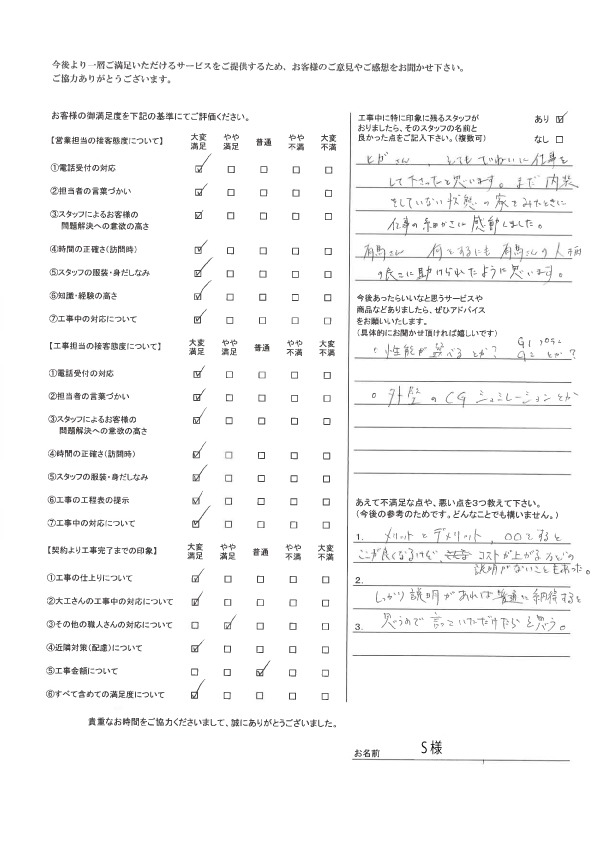 今後より一層ご満足いただけるサービスをご提供するため、お客様のご意見やご感想をお聞かせ下さい。
ご協力ありがとうございます。
お客様の御満足度を下記の基準にてご評価ください。
【営業担当の接客態度について】 大変満足 やや満足 普通 やや不満 大変不満
①電話受付の対応 ☑ □ □ □ □
②担当者の言葉づかい ☑ □ □ □ □
③スタッフによるお客様の
問題解決への意欲の高さ ☑ □ □ □ □
④時間の正確さ(訪問時) ☑ □ □ □ □
⑤スタッフの服装・身だしなみ ☑ □ □ □ □
⑥知識・経験の高さ ☑ □ □ □ □
⑦工事中の対応について ☑ □ □ □ □
【工事担当の接客態度について】 大変満足 やや満足 普通 やや不満 大変不満
①電話受付の対応 ☑ □ □ □ □
②担当者の言葉づかい ☑ □ □ □ □
③スタッフによるお客様の
問題解決への意欲の高さ ☑ □ □ □ □
④時間の正確さ(訪問時) ☑ □ □ □ □
⑤スタッフの服装・身だしなみ ☑ □ □ □ □
⑥工事の工程表の提示 ☑ □ □ □ □
⑦工事中の対応について ☑ □ □ □ □
【契約より工事完了までの印象】 大変満足 やや満足 普通 やや不満 大変不満
①工事の仕上りについて ☑ □ □ □ □
②大工さんの工事中の対応について ☑ □ □ □ □
③その他の職人さんの対応について □ ☑ □ □ □
④近隣対策(配慮)について ☑ □ □ □ □
⑤工事金額について □ □ ☑ □ □
⑥すべて含めての満足度について ☑ □ □ □ □
貴重なお時間をご協力くださいまして、誠にありがとうございました。
工事中に特に印象に残るスタッフが あり ☑
おりましたら、そのスタッフの名前と
良かった点をご記入下さい。(複数可) なし □
さん、とてもていねいに仕事を
して下さったと思います。まだ内装
をしていない状態の家をみたときに
仕事の細かさに感動しました。
有馬さん 何をするにも有馬さんの人柄
の良さに助けられたように思います。
今後あったらいいなと思うサービスや
商品などありましたら、ぜひアドバイス
をお願いいたします。
(具体的にお聞かせ頂ければ嬉しいです)
・性能が選べるとか? G1 プラン G2 とか?
○外壁のCGシュミレーションとか
あえて不満足な点や、悪い点を3つ教えて下さい。
(今後の参考のためです。どんなことでも構いません。)
1. メリットとデメリット、○○をすると
ここが良くなるけど、コストが上がるなどの
説明がないこともあった。
2.
しっかり説明があれば普通に納得すると
3. 思うので言っていただけたらと思う。
お名前 S様